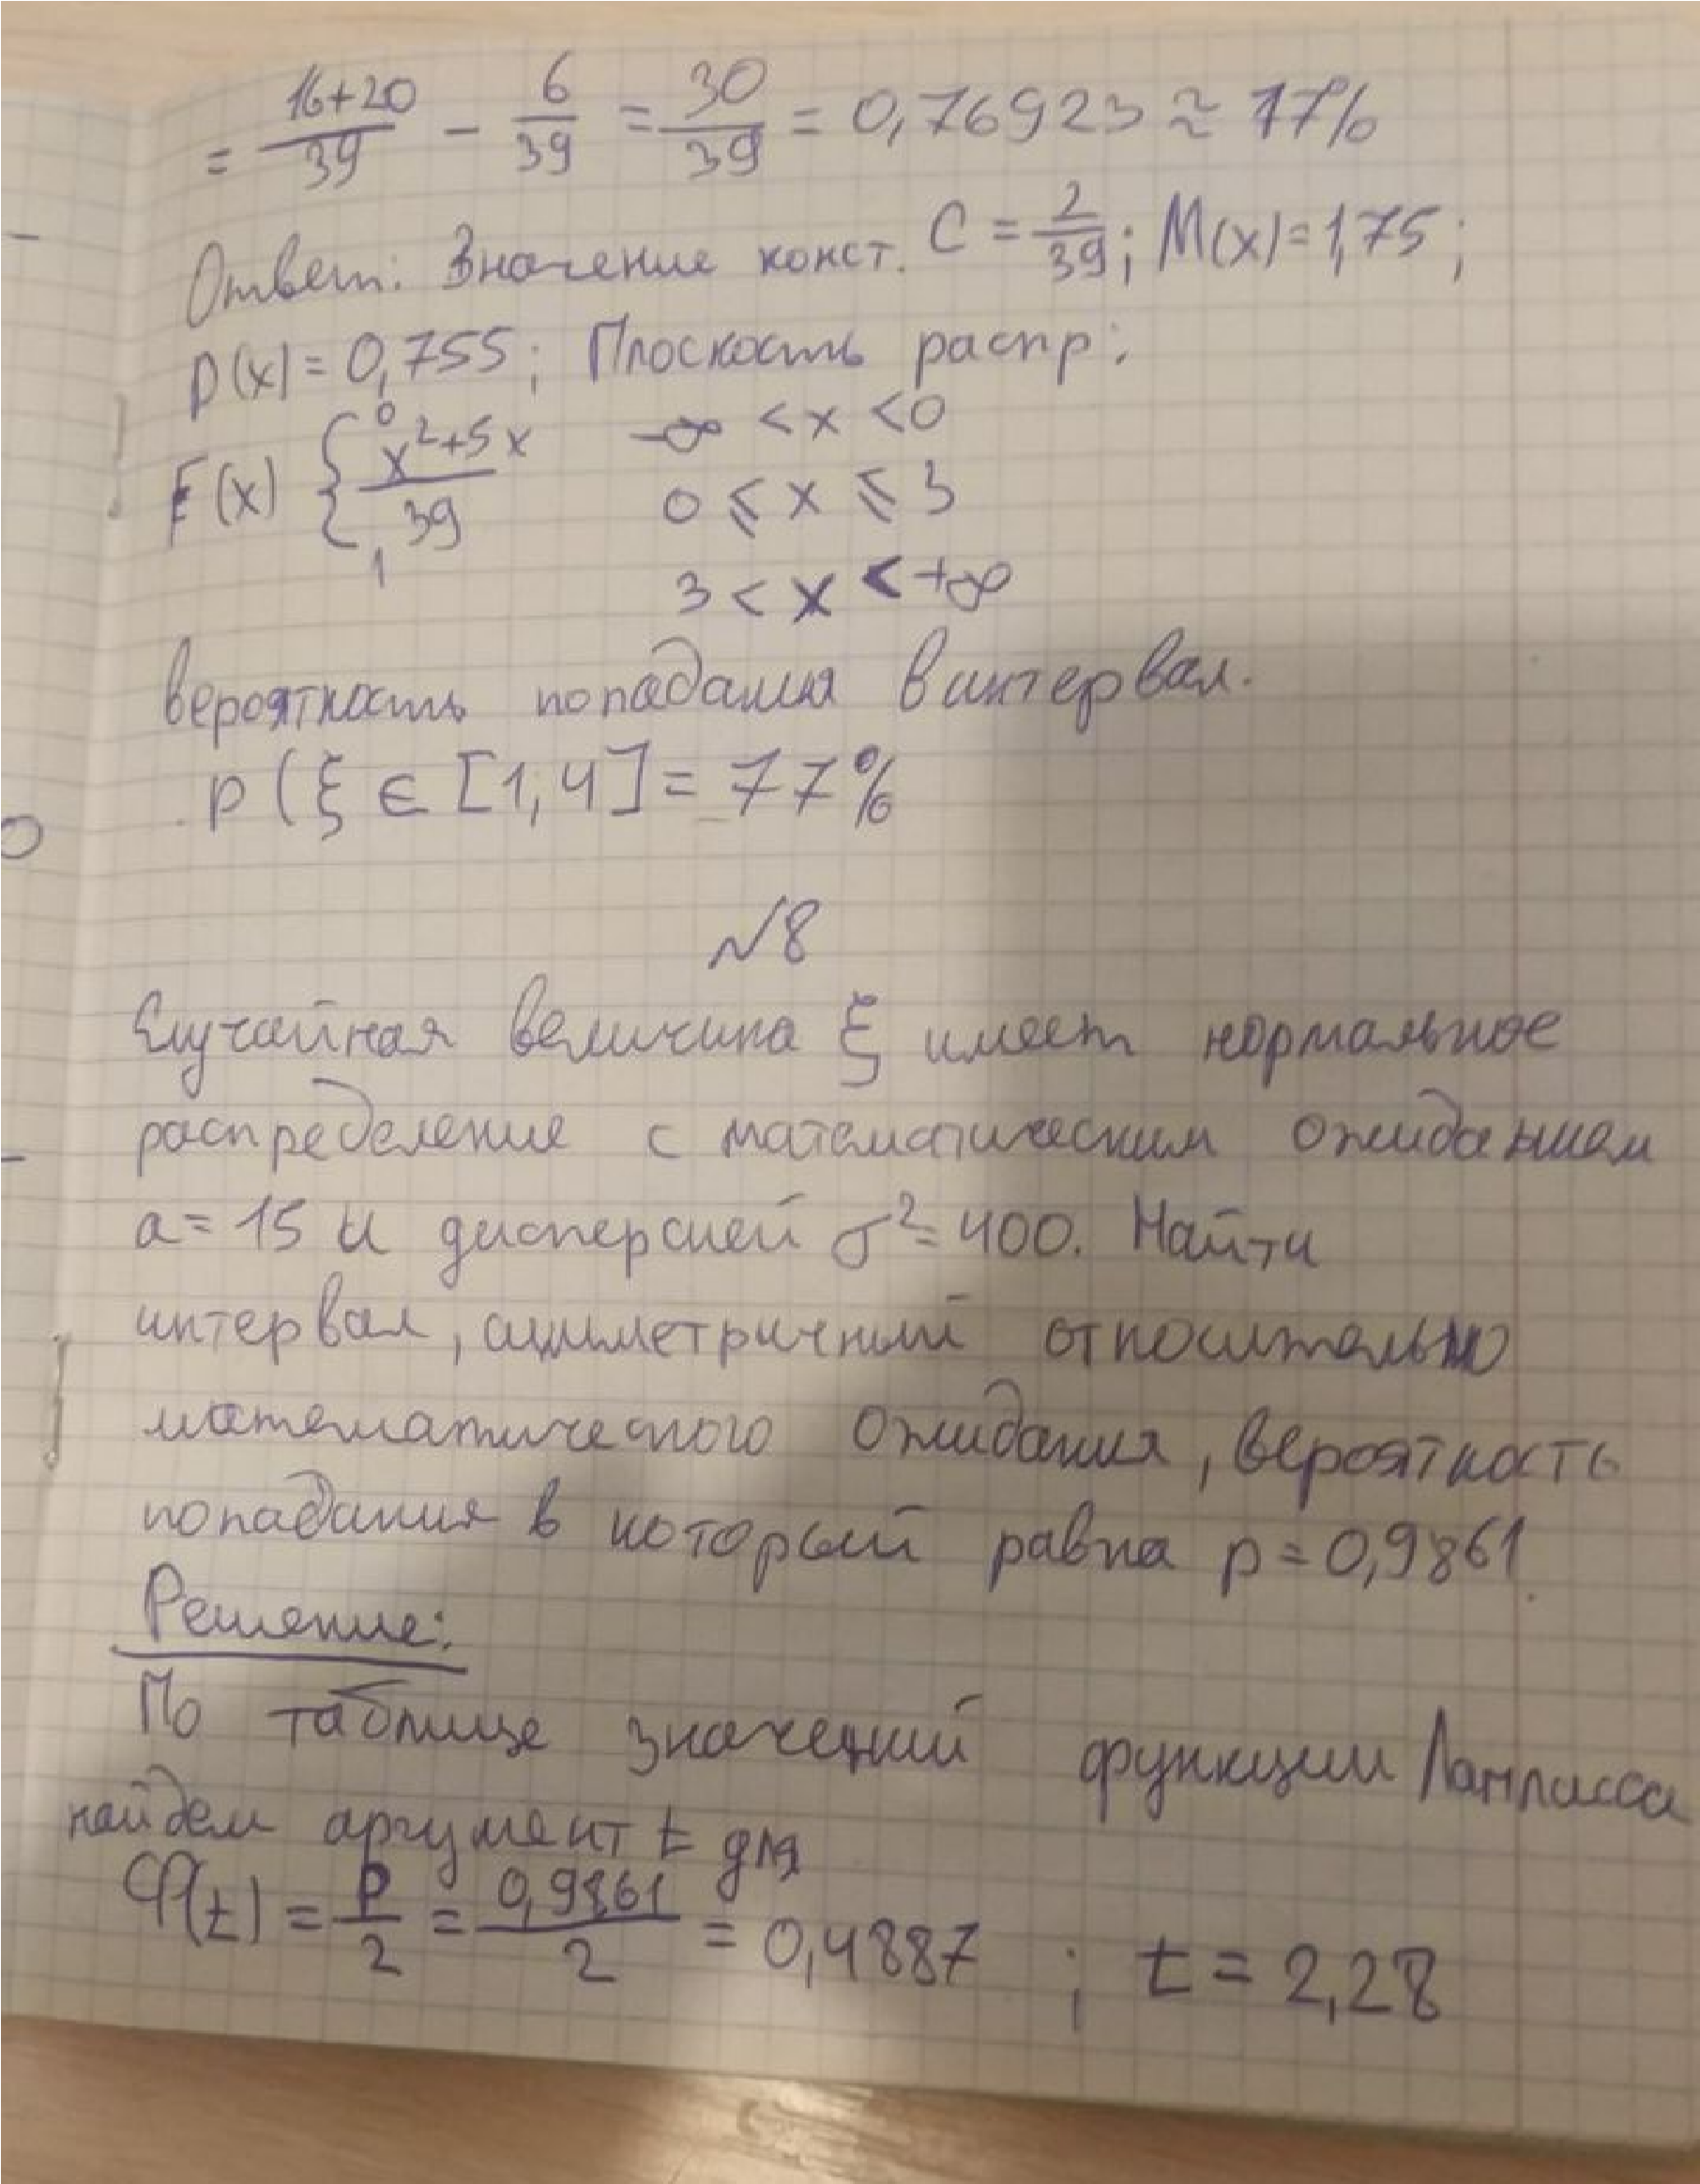 = 16+20/39 - 6/39 = 30/39 = 0,76923 ≈ 77%
Ответ: Значение конст. C = 2/39; M(x)=1,75;
D(x)=0,755; Плоскость распр:
F(x) { 0 -∞ < x < 0
x²+5x/39 0 ⩽ x ⩽ 3
1 3 < x < +∞
вероятность попадания в интервал.
p(ξ ∈ [1,4] = 77%
№8
Случайная величина ξ имеет нормальное
распределение с математическим ожиданием
a=15 и дисперсией σ²=400. Найти
интервал, симметричный относительно
математического ожидания, вероятность
попадания в который равна p=0,9861.
Решение:
По таблице значений функции Лапласса
найдем аргумент t для
Φ(t) = P/2 = 0,9861/2 = 0,4887 ; t = 2,28